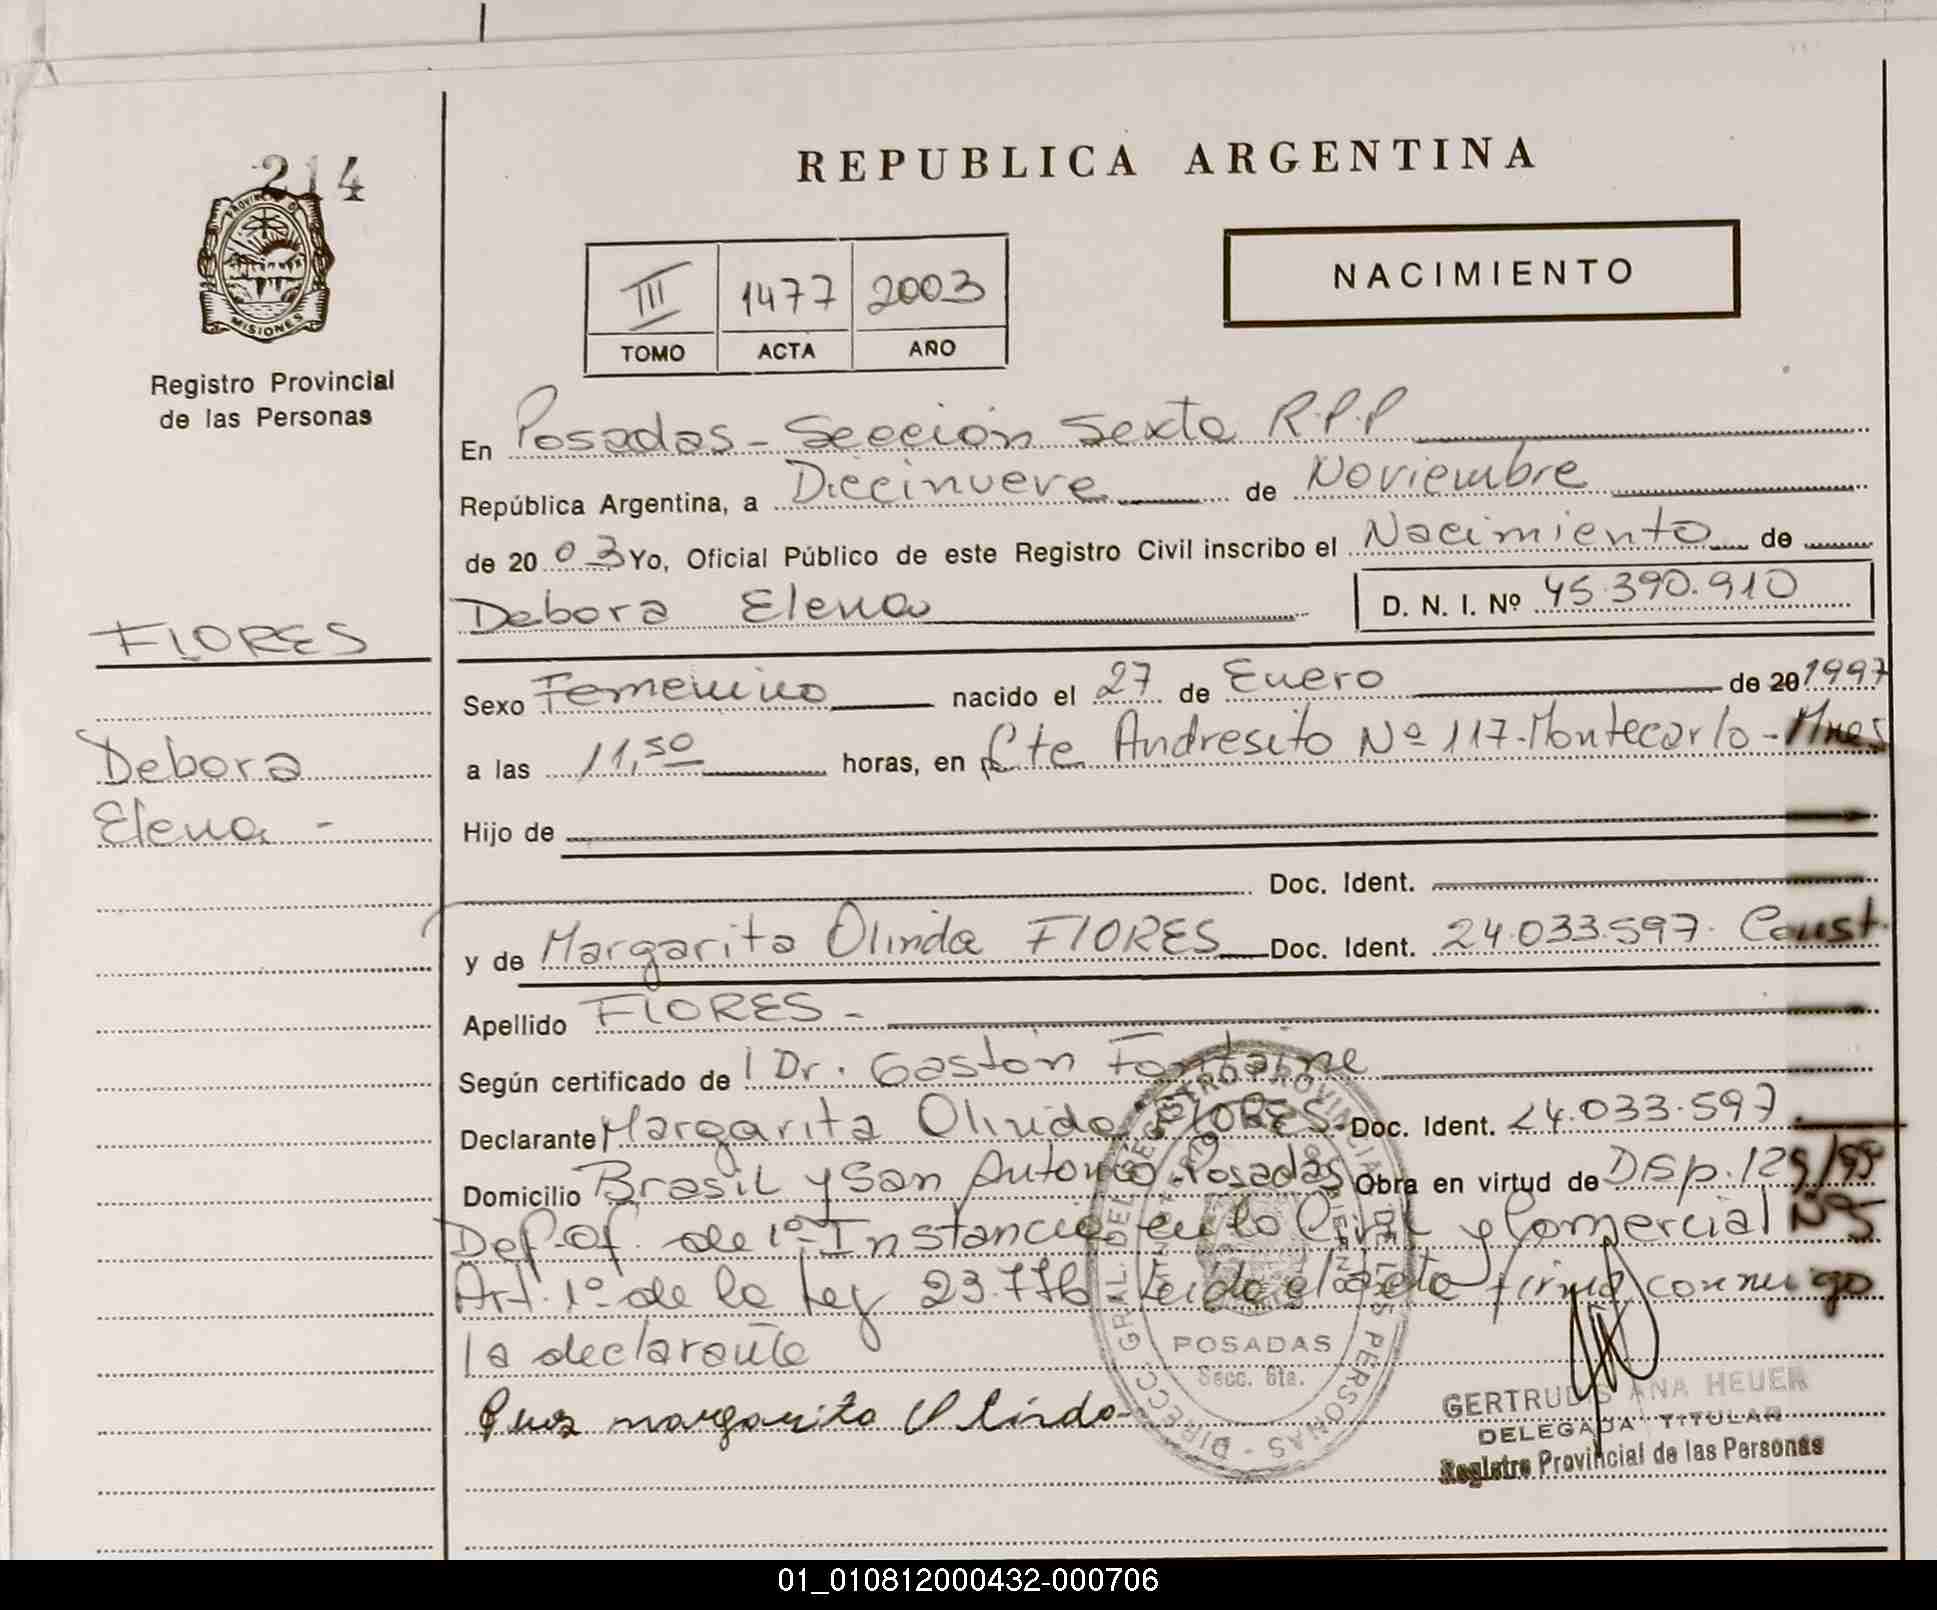 214
PROVINCIA DE
MISIONES
Registro Provincial
de las Personas
REPUBLICA ARGENTINA
III 1477 2003
TOMO ACTA AÑO
NACIMIENTO
En Posadas - Sección Sexta R.P.P
República Argentina, a Diecinueve de Noviembre
de 20 03 Yo, Oficial Público de este Registro Civil inscribo el Nacimiento de
Debora Elena D. N. I. Nº 45.390.910
FLORES
Debora
Elena -
Sexo Femenino nacido el 27 de Enero de 20 1997
a las 11,50 horas, en Cte Andresito Nº 117 - Montecarlo - Mnes
Hijo de
Doc. Ident.
y de Margarita Olinda FLORES Doc. Ident. 24.033.597. Const.
Apellido FLORES -
Según certificado de Dr. Gastón Fontaine
Declarante Margarita Olinda FLORES Doc. Ident. 24.033.597
Domicilio Brasil y San Antonio Posadas Obra en virtud de Disp. 129/95
Def. Of. de 1º Instancia en lo Civil y Comercial Nº 5
Art. 1º de la Ley 23.776 Leída el acta firma conmigo
la declarante
margarita Olinda
DIRECC. GRAL. DEL REGISTRO PROVINCIAL DE LAS PERSONAS
POSADAS
Secc. 6ta.
GERTRUDIS ANA HEUER
DELEGADA TITULAR
Registro Provincial de las Personas
01_010812000432-000706